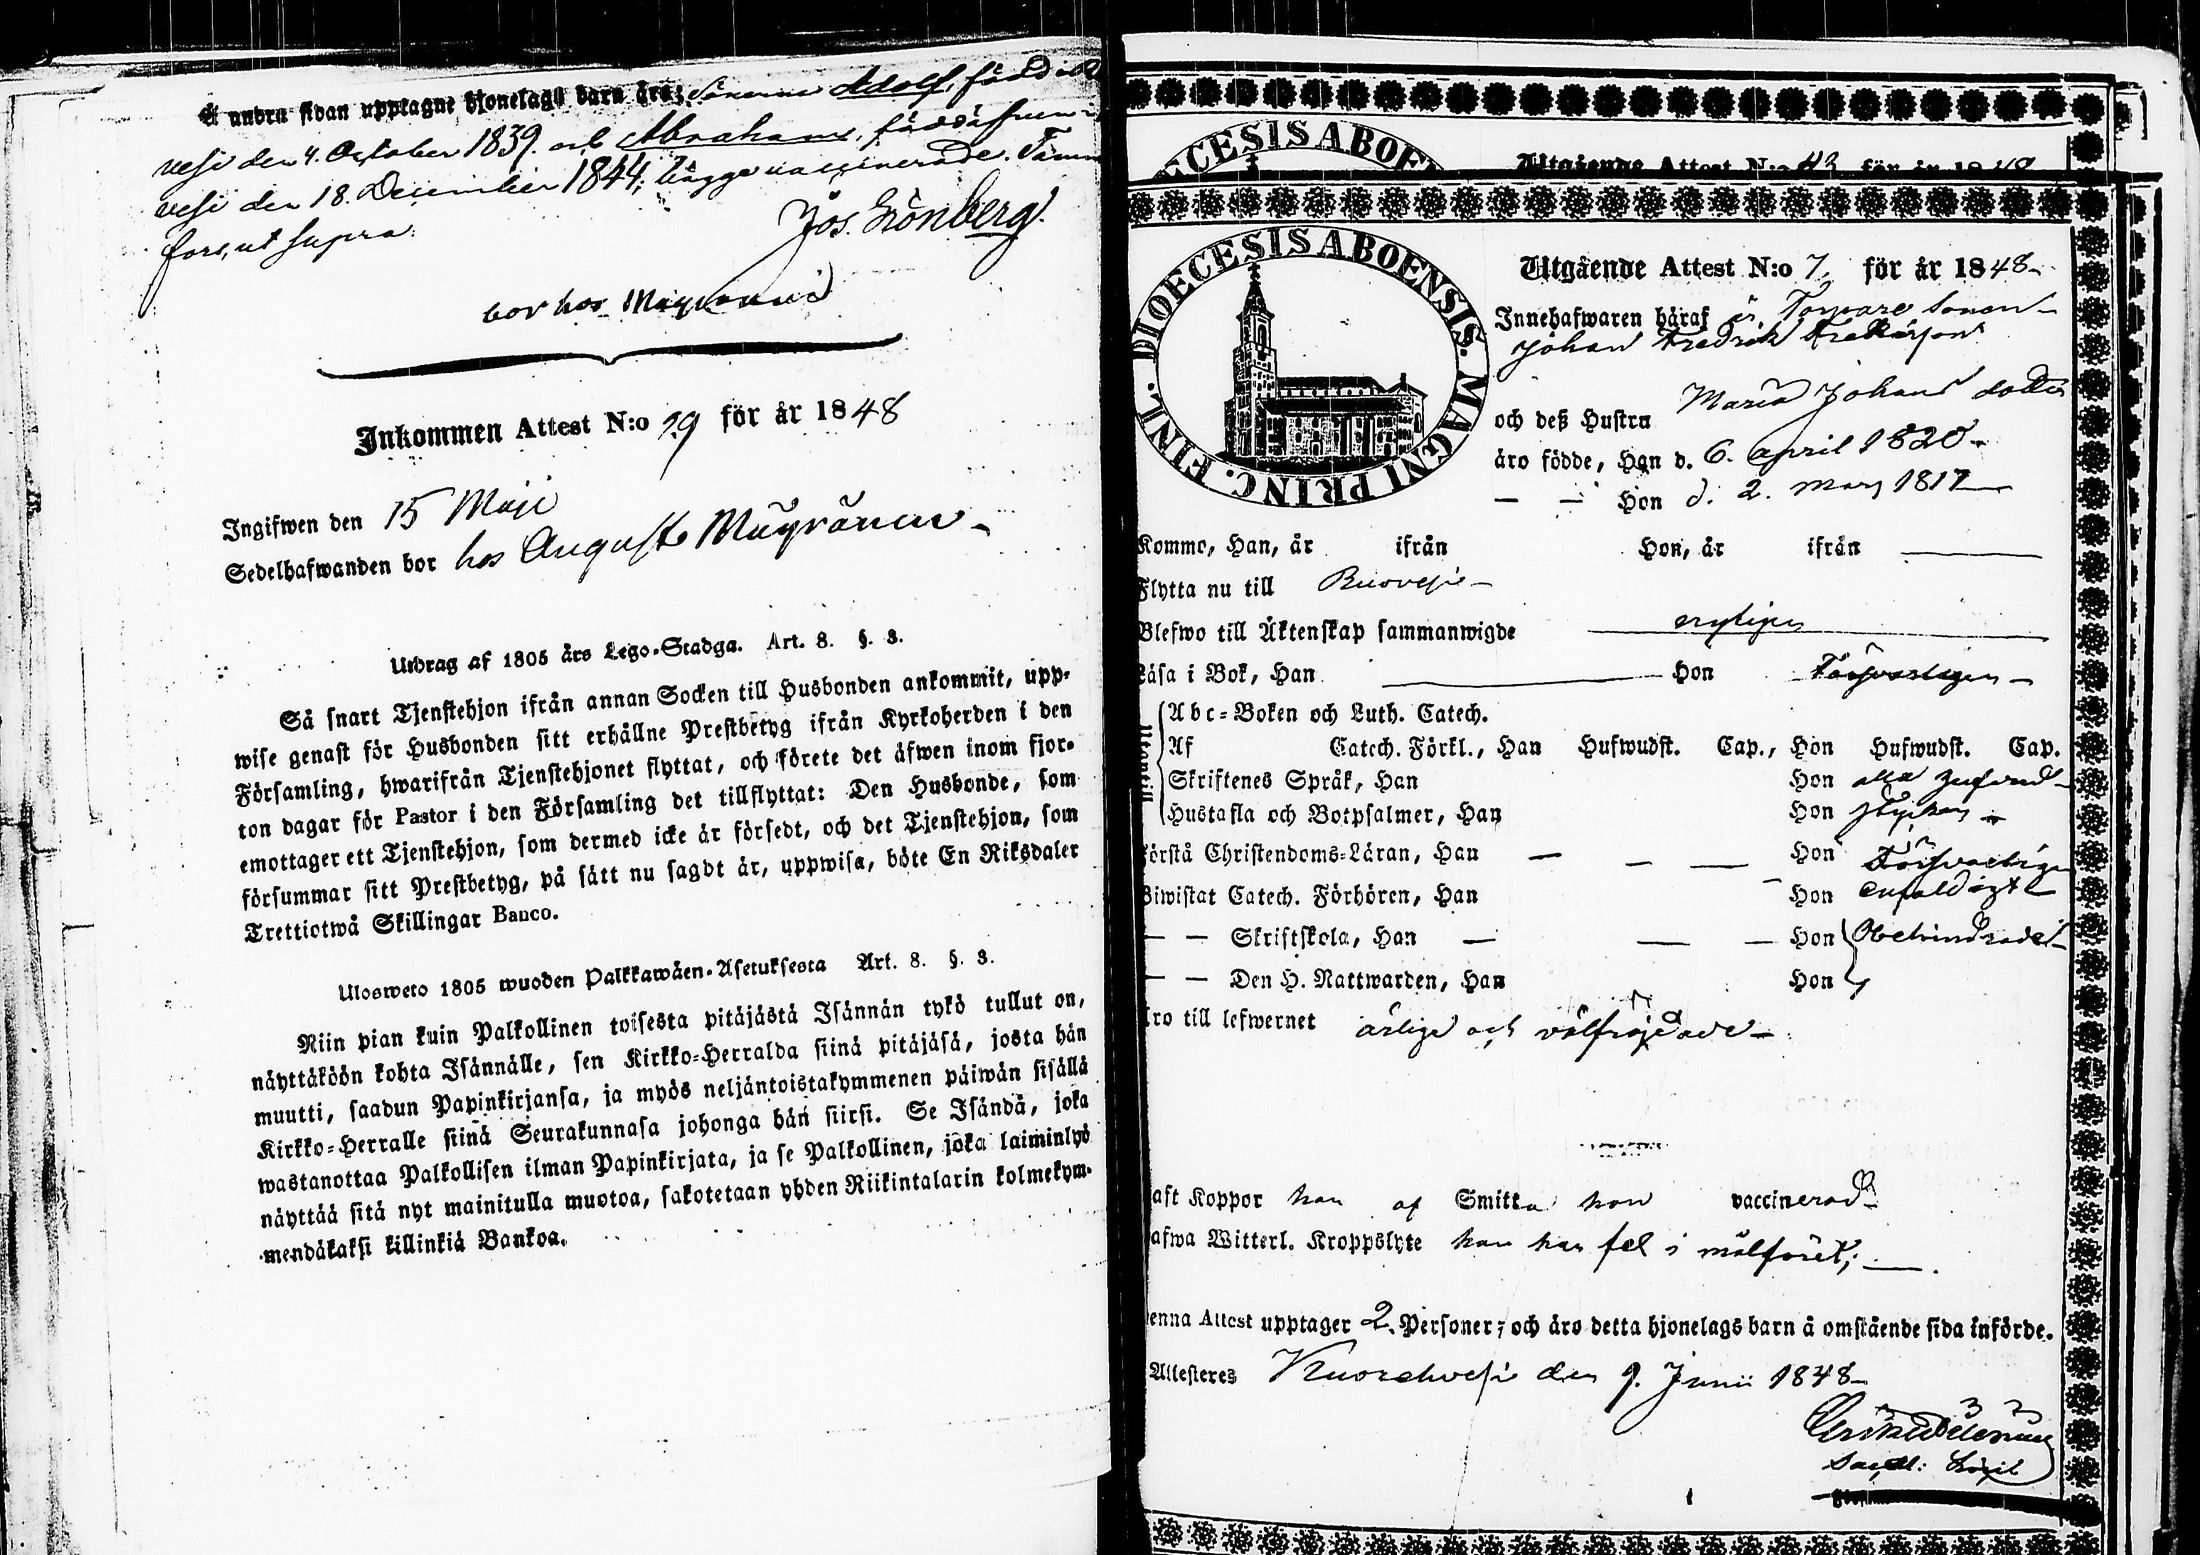 Å andra sidan upptagne hjonelags barn äro: Sönerne Adolf, född i
vesi den 4. October 1839. och Abraham, född
vesi den 18. December 1844; bägge vaccinerade.
fors, ut supra.
Jos. Grönberg.
bor hos
Inkommen Attest N:o 29 för år 1848
Ingifwen den 15 Maji
Sedelhafwanden bor hos Augusti
Utdrag af 1805 års Lego-Stadga. Art. 8. §. 3.
Så snart Tjenstehjon ifrån annan Socken till Husbonden ankommit, upp-
wise genast för Husbonden sitt erhållne Prestbetyg ifrån Kyrkoherden i den
Församling, hwarifrån Tjenstehjonet flyttat, och förete det äfwen inom fjor-
ton dagar för Pastor i den Församling det tillflyttat: Den Husbonde, som
emottager ett Tjenstehjon, som dermed icke är försedt, och det Tjenstehjon, som
försummar sitt Prestbetyg, på sätt nu sagdt är, uppwisa, böte En Riksdaler
Trettiotwå Skillingar Banco.
Ulosweto 1805 wuoden Palkkawäen-Asetuksesta Art. 8. §. 3.
Niin pian kuin Palkollinen toisesta pitäjästä Isännän tykö tullut on,
näyttäköön kohta Isännälle, sen Kirkko-Herralda siinä pitäjäsä, josta hän
muutti, saadun Papinkirjansa, ja myös neljäntoistakymmenen päiwän sisällä
Kirkko-Herralle siinä Seurakunnasa johonga hän siirsi. Se Isändä, joka
wastanottaa Palkollisen ilman Papinkirjata, ja se Palkollinen, joka laiminlyö
näyttää sitä nyt mainitulla muotoa, sakotetaan yhden Riikintalarin kolmekym-
mendäkaksi killinkiä Bankoa.
Utgående Attest N:o 43 för år 1848
DIOECESIS ABOENSIS. MAGNI PRINC. FINL.
Utgående Attest N:o 7. för år 1848
Innehafwaren häraf är Torpare sonen
Johan Fredrik
och deß Hustru Maria Johans dotter
äro födde, Han d. 6. april 1820
— — Hon d. 2. Mars 1817
Kommo, Han, år ifrån Hon, år ifrån
Flytta nu till Ruovesi
Blefwo till Äktenskap sammanwigde nyligen
Läsa i Bok, Han Hon Försvarligen
Abc-Boken och Luth. Catech.
Af Catech. Förkl., Han Hufwudst. Cap., Hon Hufwudst. Cap.
Skriftenes Språk, Han Hon alla
Hustafla och Botpsalmer, Han Hon stycken
Förstå Christendoms-Läran, Han Hon Försvarligen
Biwistat Catech. Förhören, Han Hon
— — Skriftskola, Han Hon Obehindrade
— — Den H. Nattwarden, Han Hon
Äro till lefwernet ärlige och välfrejdade
Haft Koppor han af Smitta hon vaccinerad
Hafwa Witterl. Kroppslyte han har fel i målföret;
Denna Attest upptager 2. Personer; och äro detta hjonelags barn å omstående sida införde.
Attesteres Kuorehvesi den 9. Junii 1848